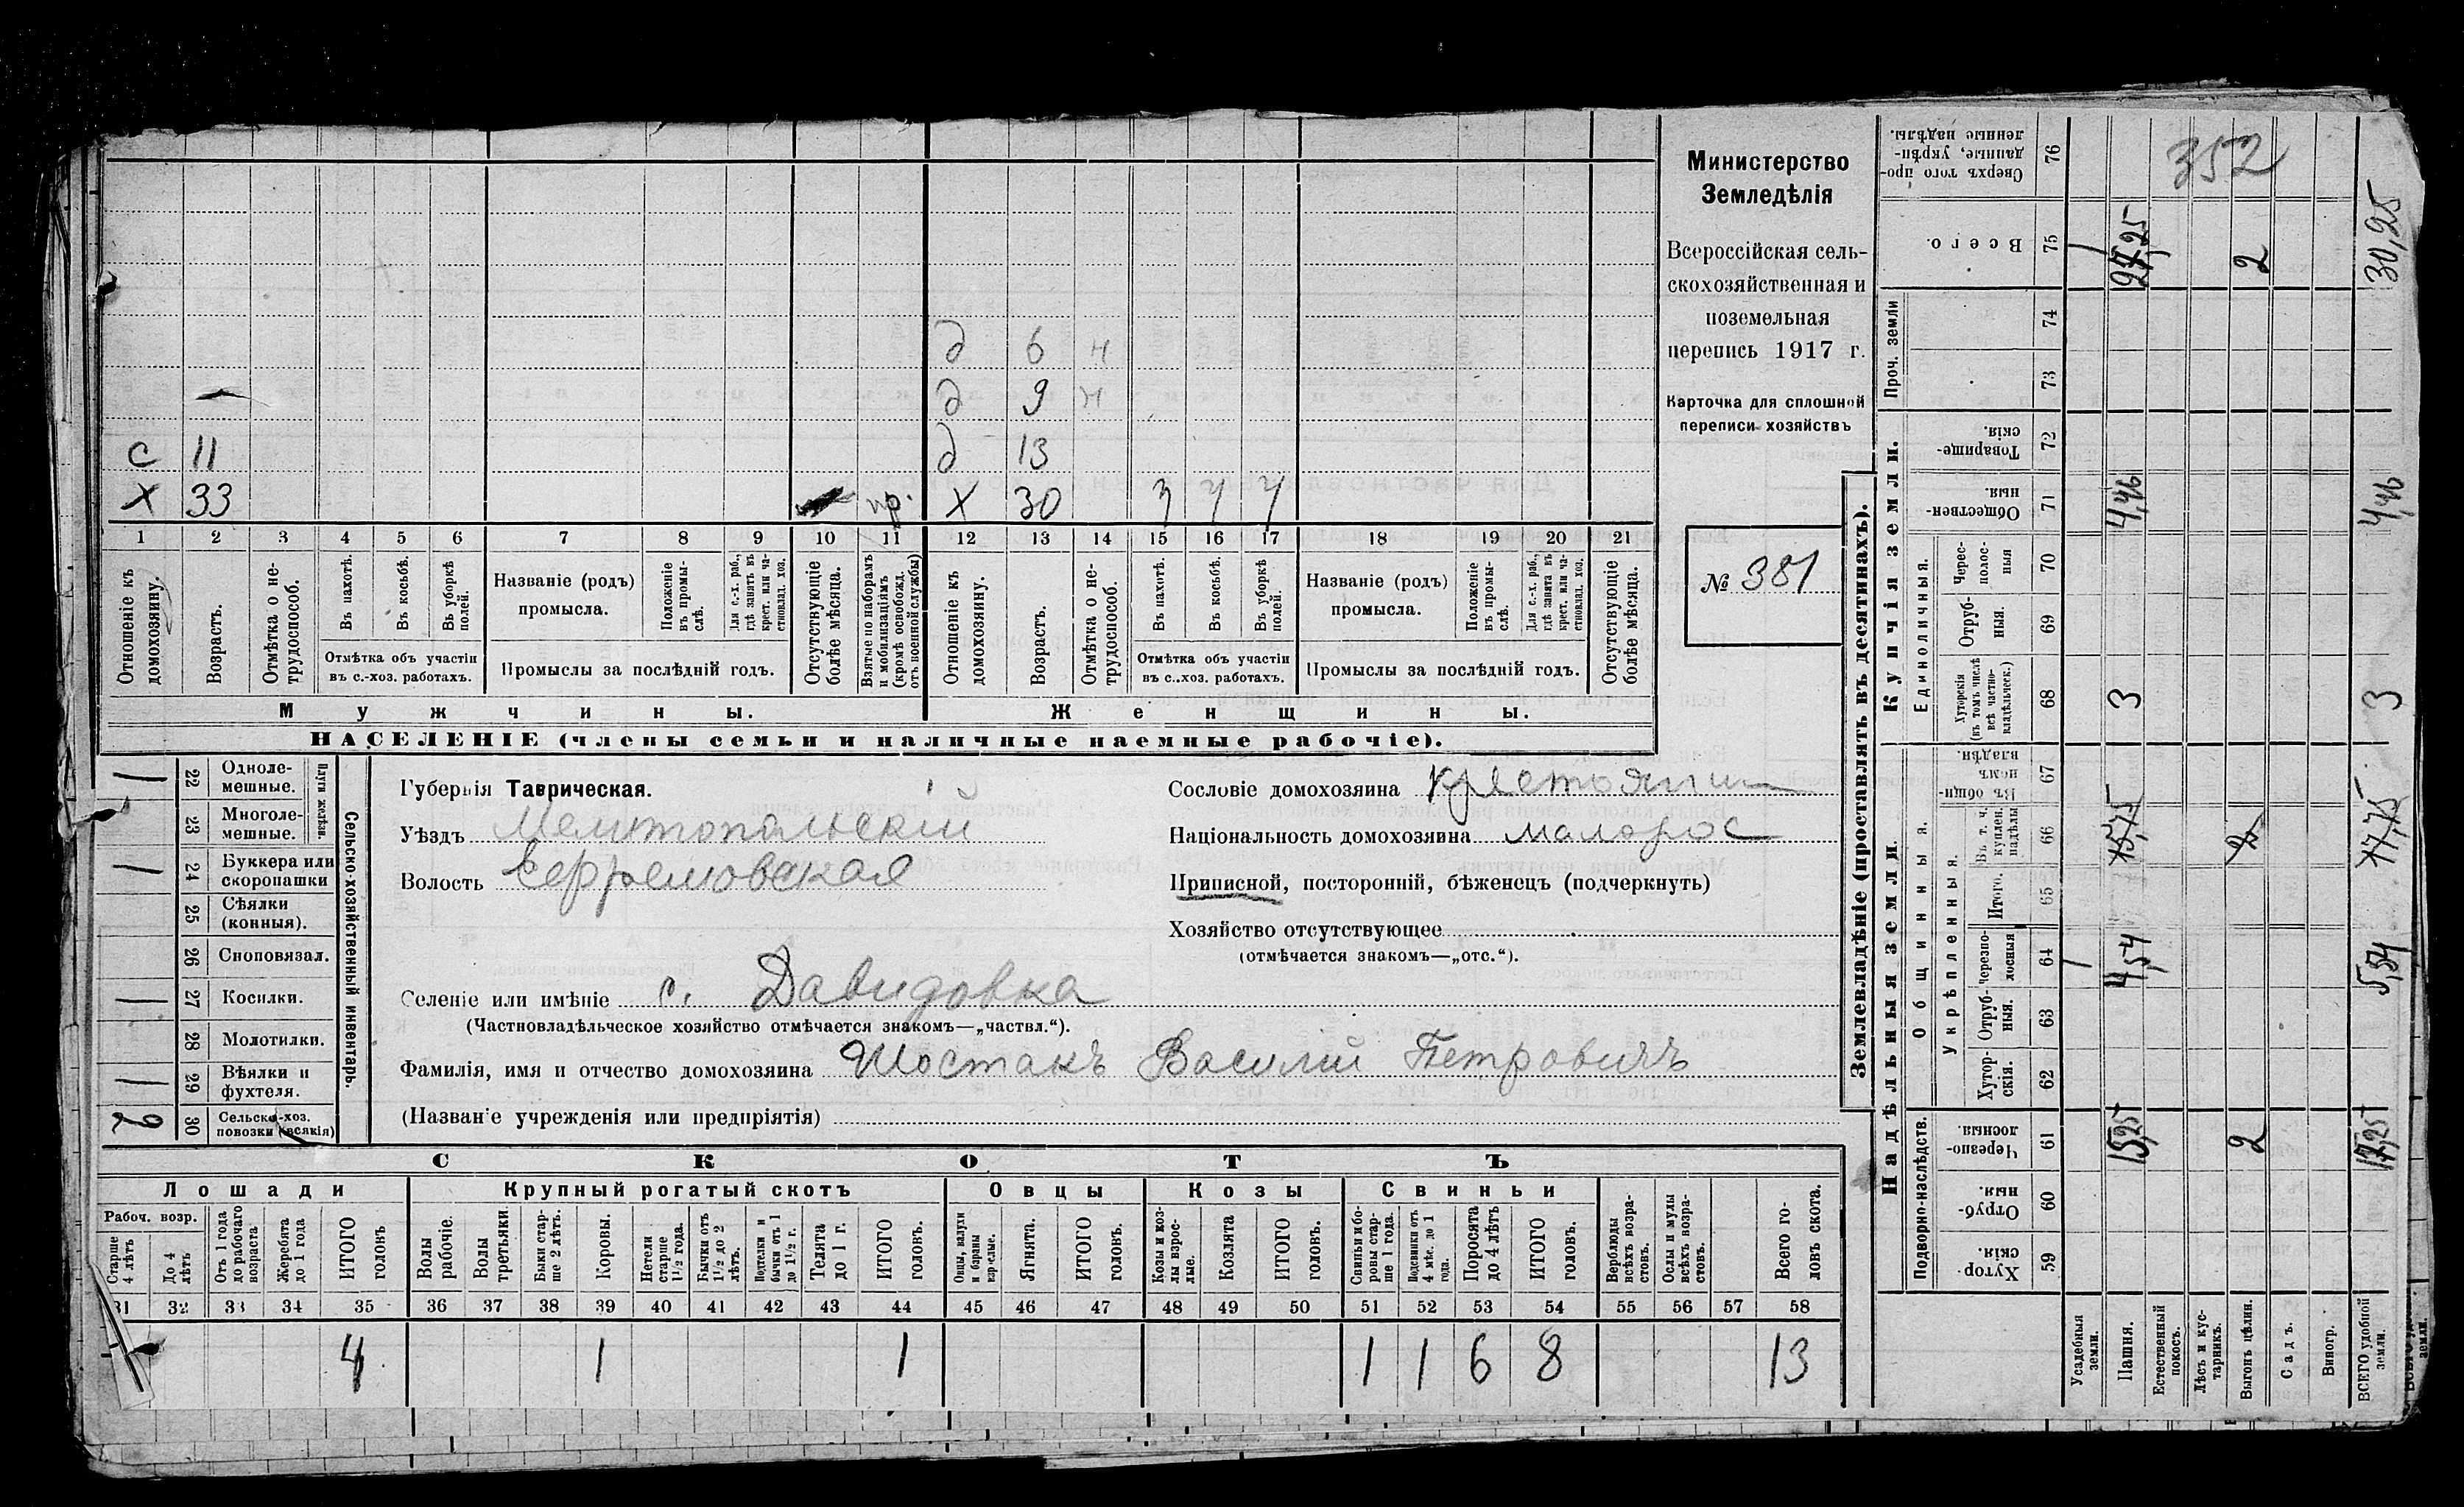 д 6 н
д 9 н
с 11 д 13
х 33 пр. х 30 7 7 7
1 2 3 4 5 6 7 8 9 10 11 12 13 14 15 16 17 18 19 20 21
Отношеніе къ домохозяину.
Возрастъ.
Отмѣтка о нетрудоспособ.
Въ пахотѣ.
Въ косьбѣ.
Въ уборкѣ полей.
Отмѣтка объ участіи
въ с.-хоз. работахъ.
Названіе (родъ)
промысла.
Положеніе въ промыслѣ.
Для с.-х. раб., гдѣ занятъ въ крест. или частновлад. хоз.
Промыслы за послѣдній годъ.
Отсутствующіе болѣе мѣсяца.
Взятые по наборамъ и мобилизаціямъ (кромѣ освобожд. отъ военной службы)
Отношеніе къ домохозяину.
Возрастъ.
Отмѣтка о нетрудоспособ.
Въ пахотѣ.
Въ косьбѣ.
Въ уборкѣ полей.
Отмѣтка объ участіи
въ с..хоз. работахъ.
Названіе (родъ)
промысла.
Положеніе въ промыслѣ.
Для с.-х. раб., гдѣ занята въ крест. или частновлад. хоз.
Промыслы за послѣдній годъ.
Отсутствующіе болѣе мѣсяца.
Мужчины. Женщины.
НАСЕЛЕНІЕ (члены семьи и наличные наемные рабочіе).
Министерство
Земледѣлія
Всероссійская сель-
скохозяйственная и
поземельная
перепись 1917 г.
Карточка для сплошной
переписи хозяйствъ
№ 381
Сельско-хозяйственный инвентарь.
Плуги желѣзн.
1 22 Одноле-
мешные.
23 Многоле-
мешные.
1 24 Буккера или
скоропашки
25 Сѣялки
(конныя).
26 Сноповязал.
1 27 Косилки.
28 Молотилки.
1 29 Вѣялки и
фухтеля.
2 30 Сельско-хоз.
повозки (всякія)
Губернія Таврическая.
Уѣздъ Мелитопольскій
Волость Ефремовская
Селеніе или имѣніе с. Давидовка
(Частновладѣльческое хозяйство отмѣчается знакомъ—„частвл.“).
Фамилія, имя и отчество домохозяина Шостакъ Василій Петровичъ
(Названіе учрежденія или предпріятія)
Сословіе домохозяина крестьянин
Національность домохозяина малорос
Приписной, посторонній, бѣженецъ (подчеркнуть)
Хозяйство отсутствующее
(отмѣчается знакомъ—„отс.“).
СКОТЪ
Лошади Крупный рогатый скотъ Овцы Козы Свиньи
Рабоч. возр.
Старше 4 лѣтъ
До 4 лѣтъ
Отъ 1 года до рабочаго возраста
Жеребята до 1 года
ИТОГО головъ
Волы рабочіе.
Волы третьяки.
Быки старше 2 лѣтъ.
Коровы.
Нетели старше 1 1/2 года.
Бычки отъ 1 1/2 до 2 лѣтъ.
Подтелки и бычки отъ 1 до 1 1/2 г.
Телята до 1 г.
ИТОГО головъ.
Овцы, валухи и бараны взрослые.
Ягнята.
ИТОГО головъ.
Козы и козлы взрослые.
Козлята
ИТОГО головъ.
Свиньи и боровы старше 1 года.
Подсвинки отъ 4 мѣс. до 1 года.
Поросята до 4 лѣтъ
ИТОГО головъ.
Верблюды всѣхъ возрастовъ.
Ослы и мулы всѣхъ возрастовъ.
Всего головъ скота.
31 32 33 34 35 36 37 38 39 40 41 42 43 44 45 46 47 48 49 50 51 52 53 54 55 56 57 58
4 1 1 1 1 6 8 13
Землевладѣніе (проставлять въ десятинахъ).
Надѣльныя земли. Купчія земли. Проч. земли
Подворно-наслѣдств.
Общинныя.
Укрѣпленныя.
Единоличныя.
Сверхъ того проданные, укрѣпленные надѣлы. 76 352
Всего. 75 27,25 2 30,25
74
73
Товарищескія. 72
Общественныя. 71 4,46 4,46
Черезполосныя 70
Отрубныя. 69
Хуторскія (въ томъ числѣ всѣ частновладѣльческ.) 68 3 3
Въ общинномъ владѣн. 67
Въ т. ч. куплен. надѣлы 66 15,75 2 17,75
Итого. 65
Черезполосныя 64 1 4,54 5,54
Отрубныя. 63
Хуторскія. 62
Черезполосныя. 61 15,25 2 17,25
Отрубныя. 60
Хуторскія. 59
Усадебныя земли.
Пашня.
Естественный покосъ.
Лѣсъ и кустарникъ.
Выгонъ цѣлин.
Садъ.
Виногр.
ВСЕГО удобной земли.